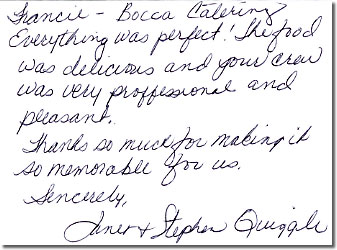 Francie - Bocca Catering
Everything was perfect! The food
was delicious and your crew
was very proffessional and
pleasant.
Thanks so much for making it
so memorable for us.
Sincerely,
Janet & Stephen Quiggle